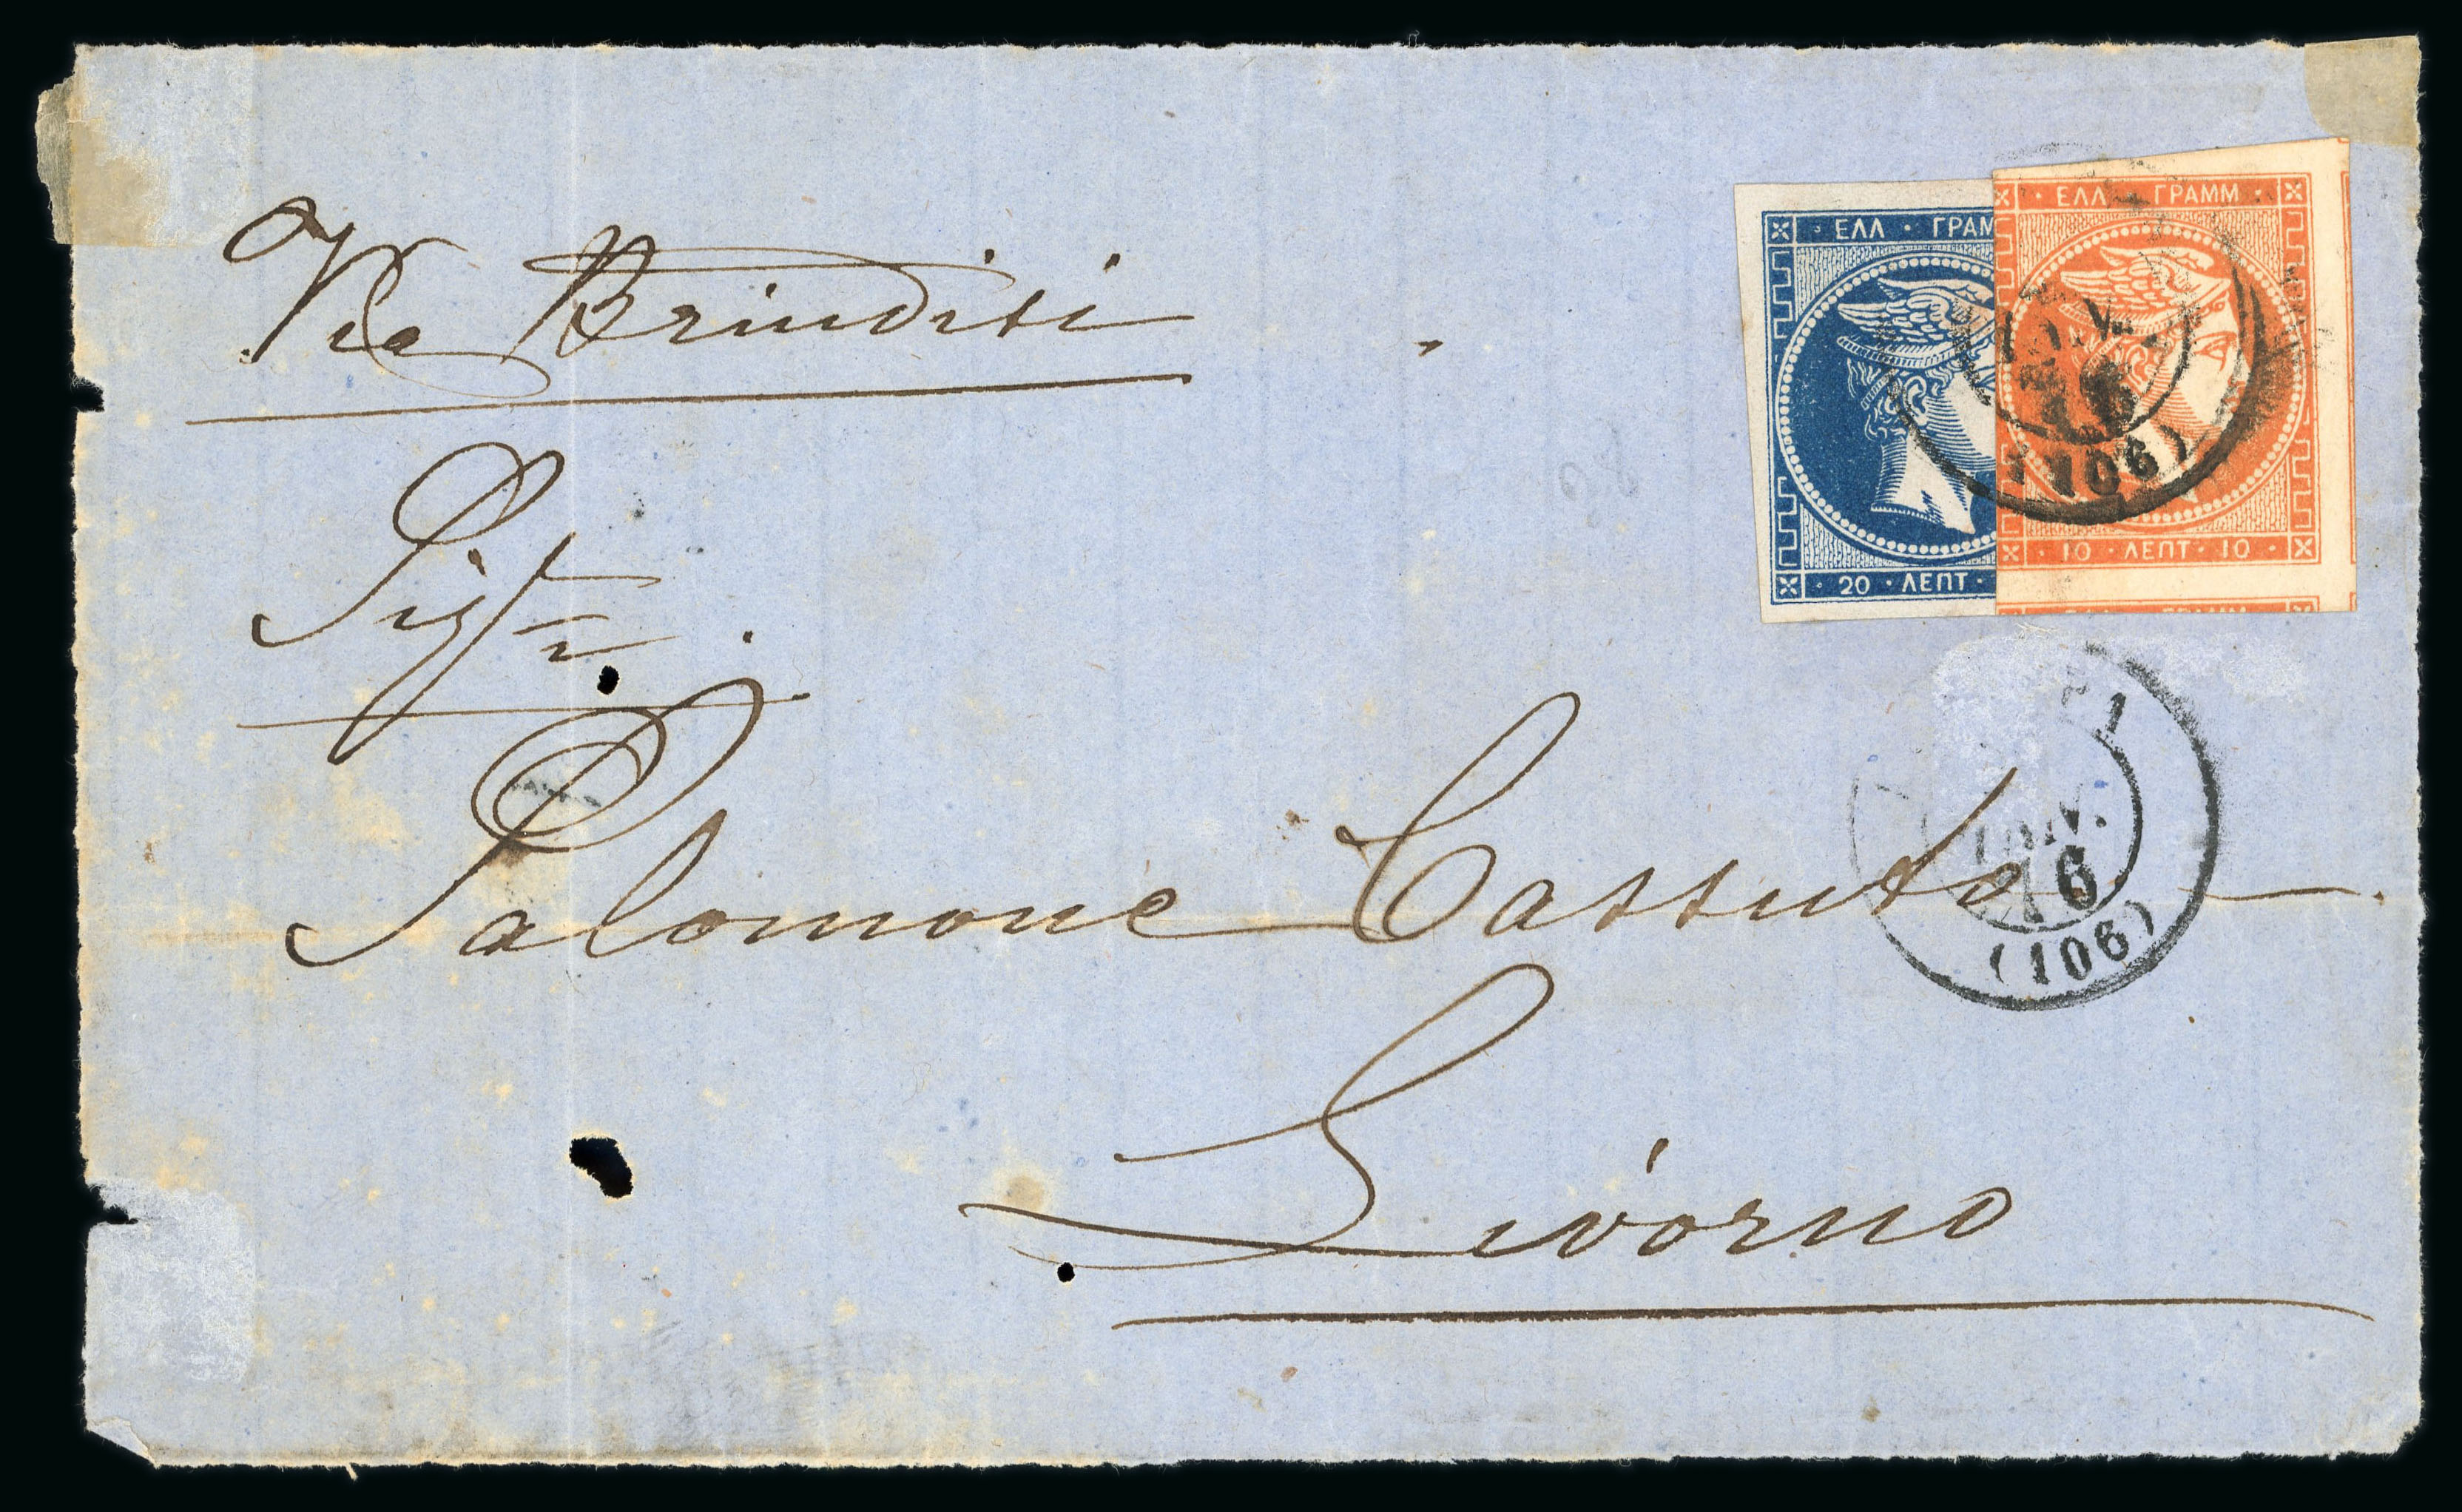 Via Brindisi
ΕΛΛ · ΓΡΑΜ
20 · ΛΕΠΤ ·
ΕΛΛ ΓΡΑΜΜ
10 · ΛΕΠΤ · 10
ΕΛΛ ΓΡΑΜΜ
(106)
Sigri
Salomone Cassuto
ΙΟΥΝ.
16
(106)
Livorno